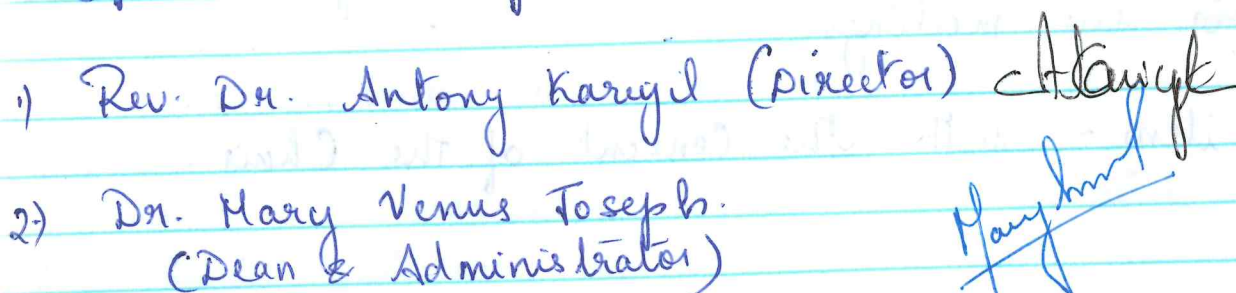 1) Rev. Dr. Antony Kariyil (Director)
2) Dr. Mary Venus Joseph.
(Dean & Administrator)